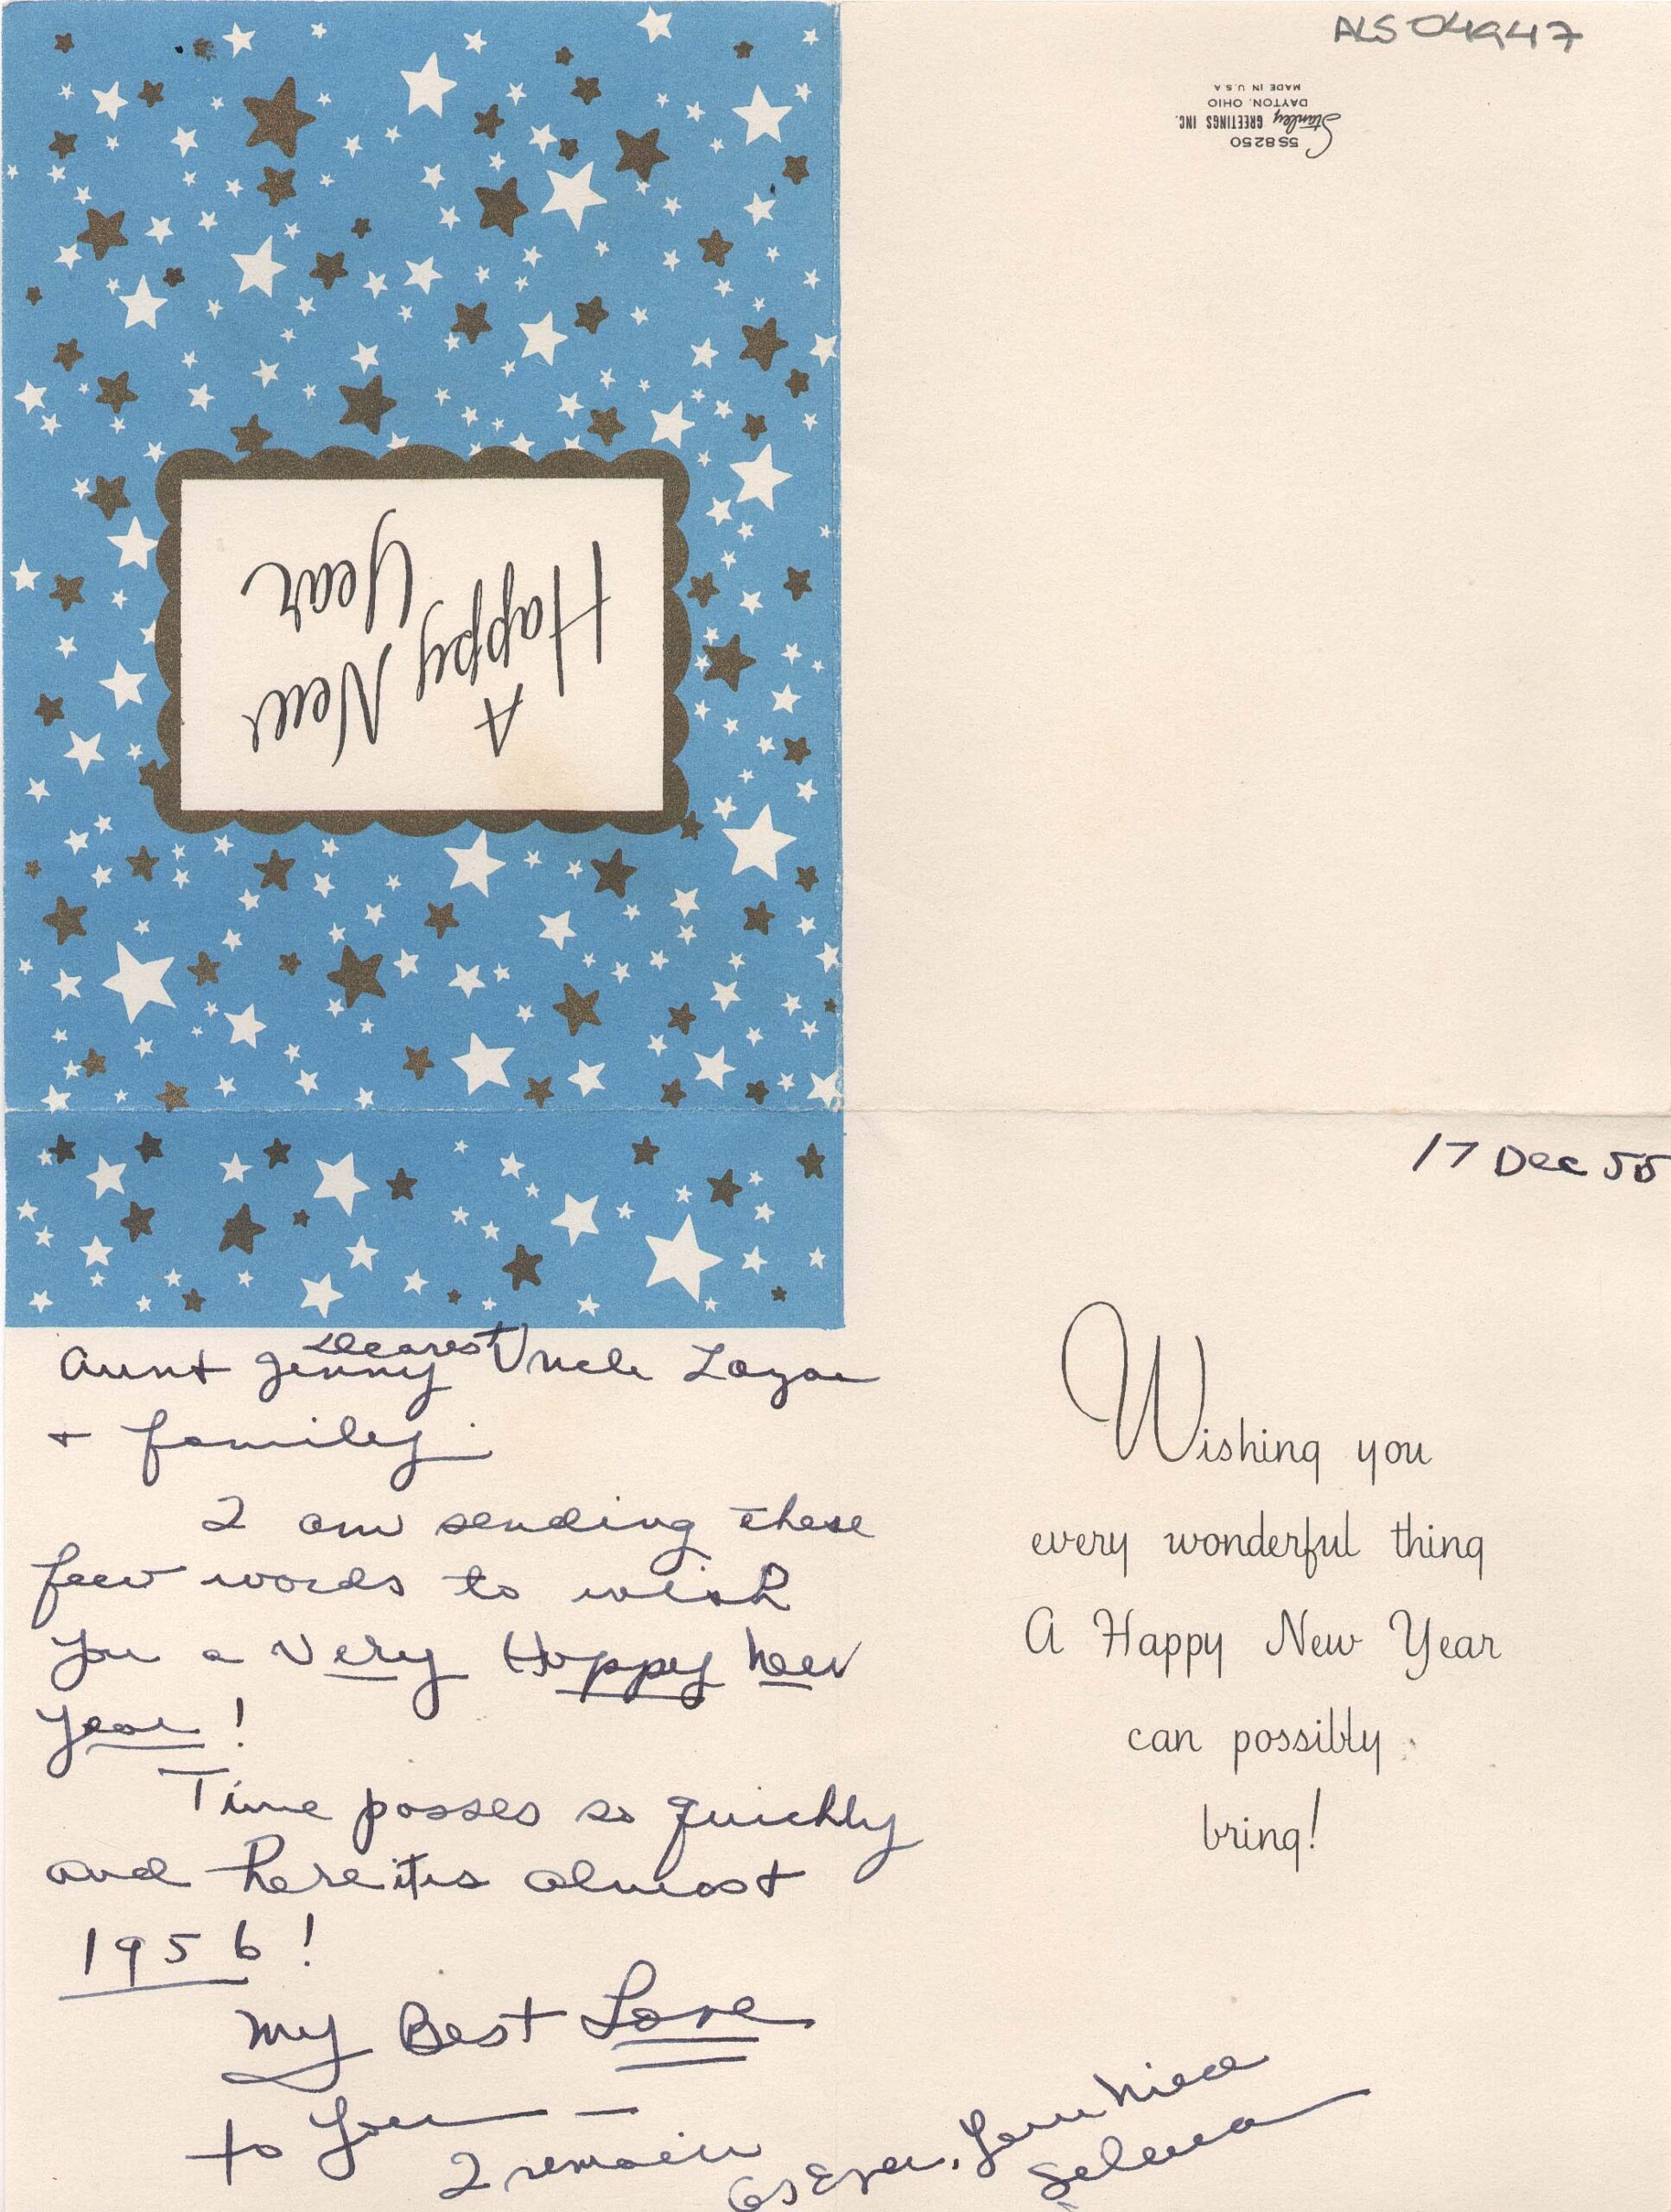 ALS 04947
5S8250
Stanley GREETINGS INC.
DAYTON, OHIO
MADE IN U.S.A
A
Happy New
Year
17 Dec 55
Dearest
Aunt Jenny Uncle Lazar
+ family
I am sending these
few words to wish
you a Very Happy New
Year!
Time passes so quickly
and here it is almost
1956!
My Best Love
to You —
I remain
as Ever, Your Niece
Selena
Wishing you
every wonderful thing
A Happy New Year
can possibly
bring!